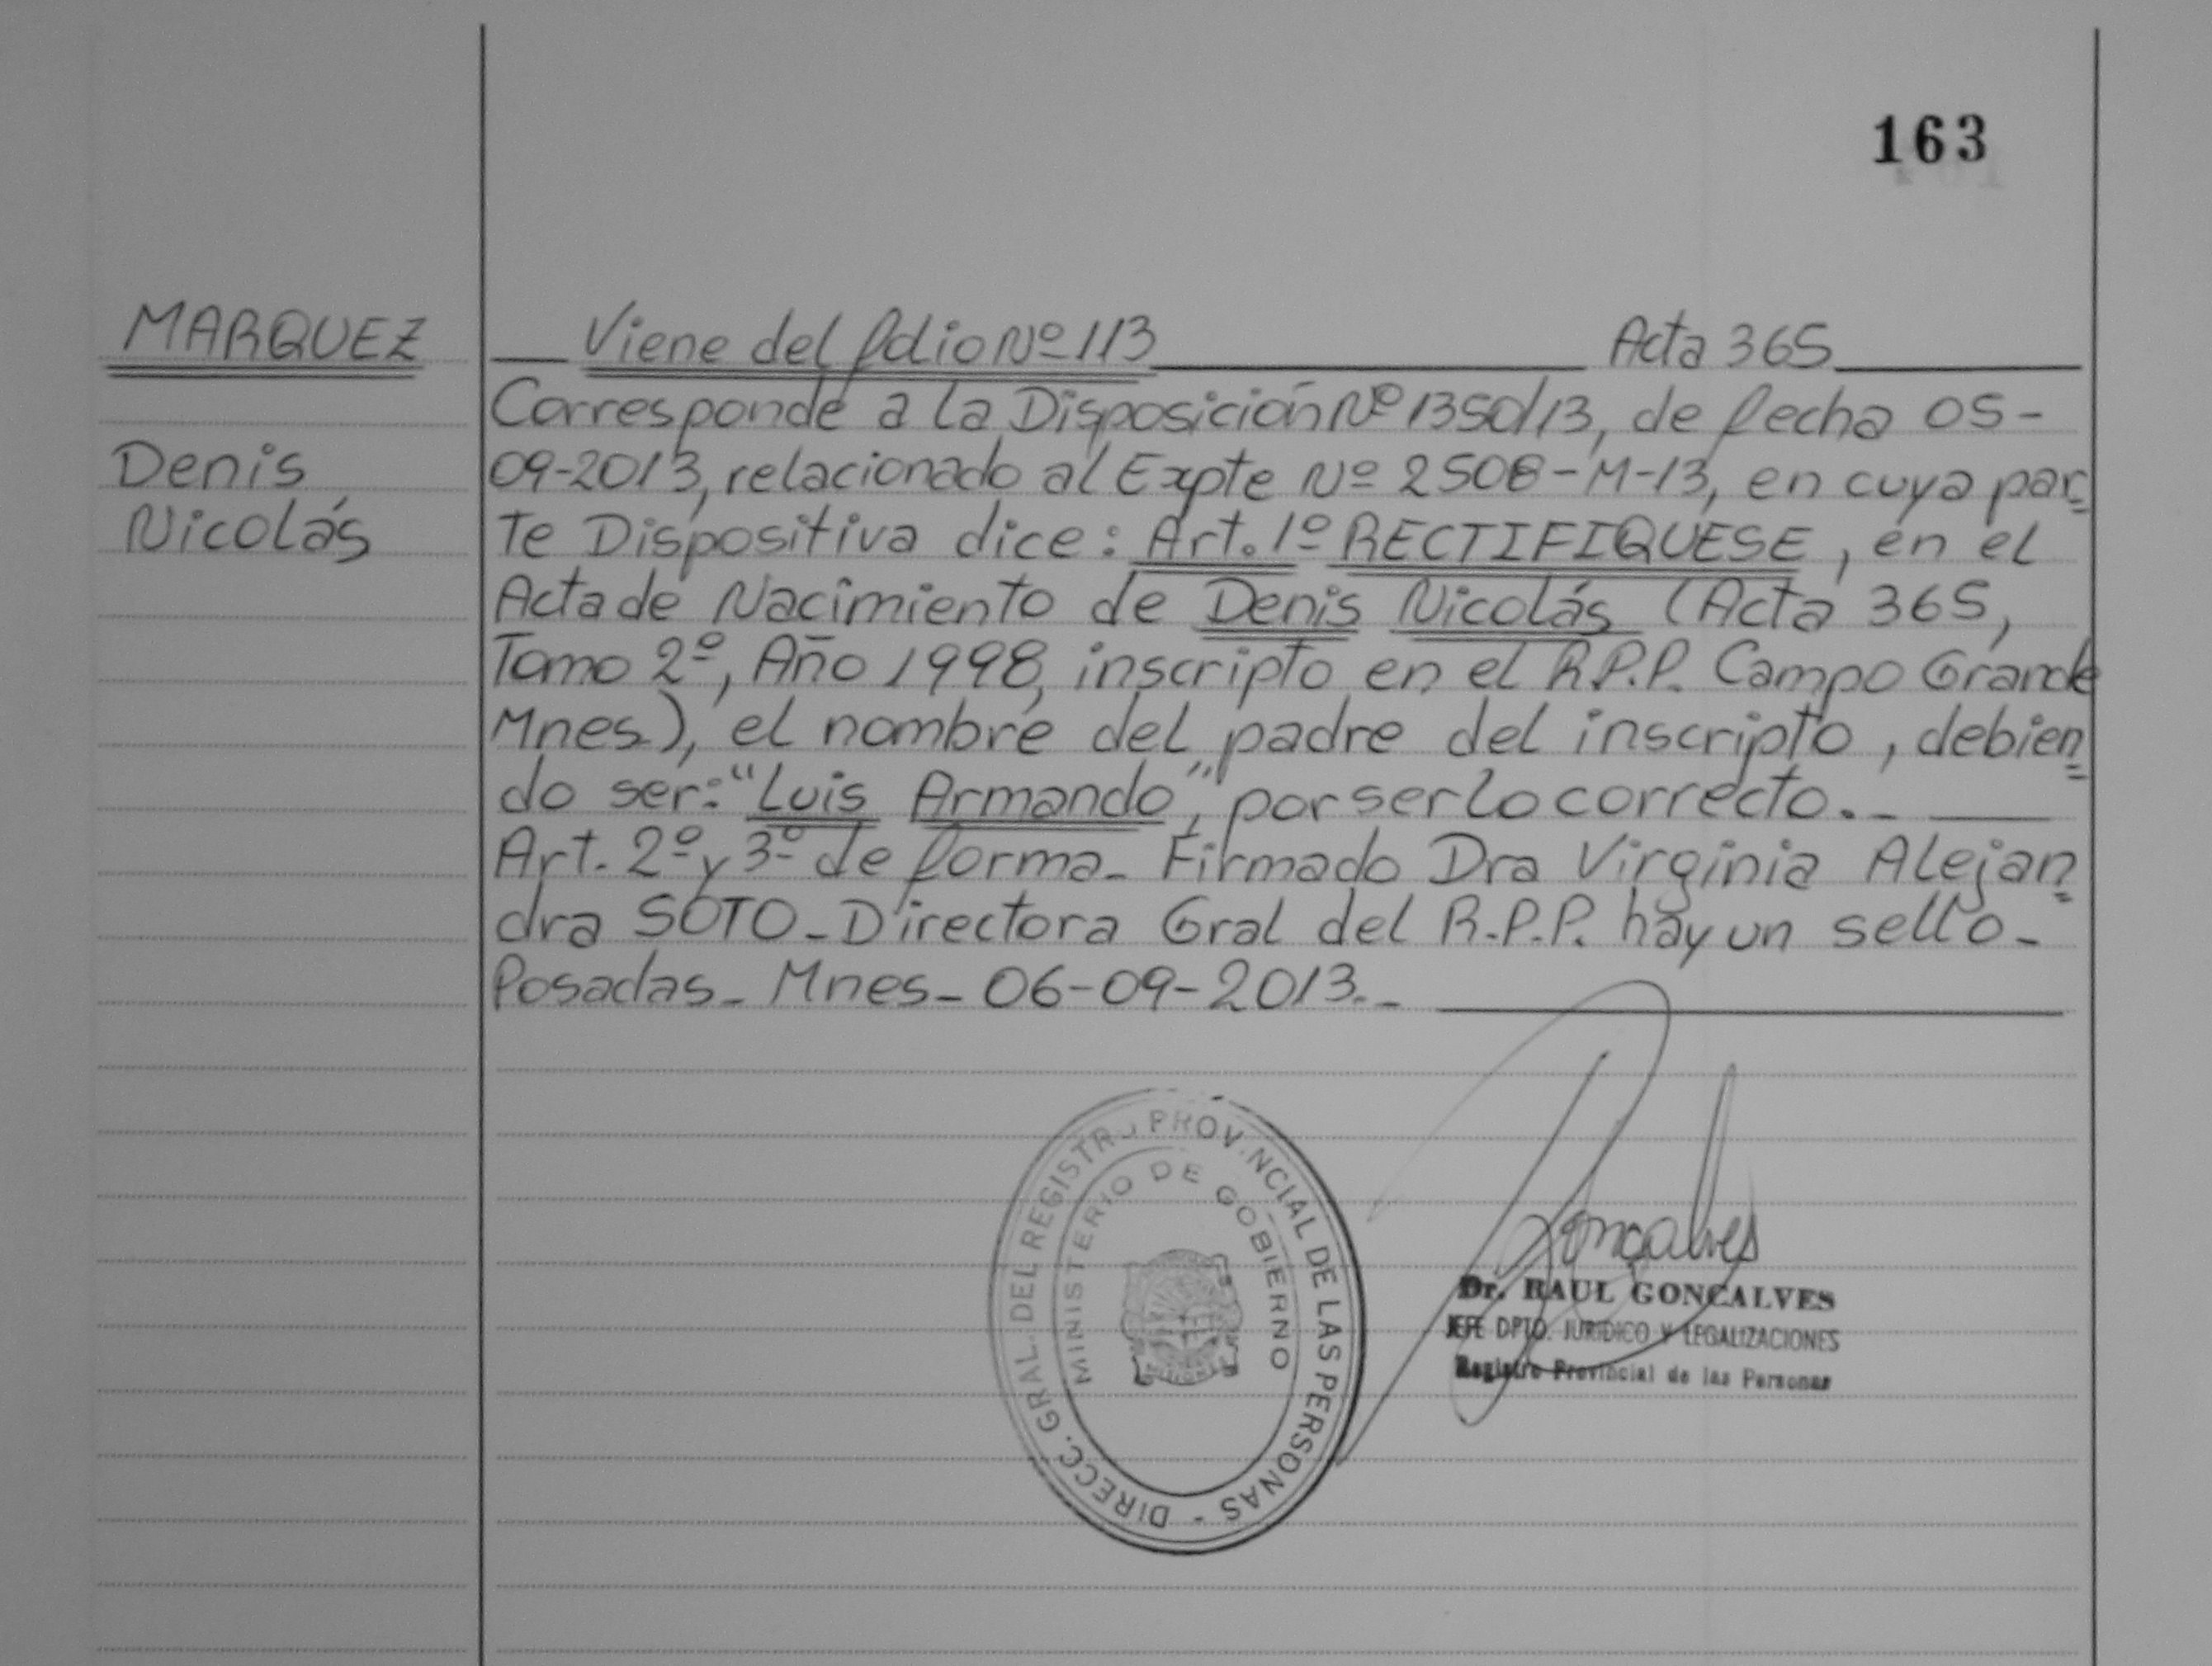 163
MARQUEZ
Denis
Nicolás
Viene del folio Nº 113 Acta 365
Corresponde a la Disposición Nº 1350/13, de fecha 05-
09-2013, relacionado al Expte Nº 2508-M-13, en cuya par=
te Dispositiva dice: Art. 1º RECTIFIQUESE, en el
Acta de Nacimiento de Denis Nicolás (Acta 365,
Tomo 2º, Año 1998, inscripto en el R.P.P. Campo Grande
Mnes), el nombre del padre del inscripto, debien=
do ser: "Luis Armando", por ser lo correcto.-
Art. 2º y 3º de forma- Firmado Dra Virginia Alejan=
dra SOTO-Directora Gral del R.P.P. hay un sello-
Posadas- Mnes- 06-09-2013.-
DIRECC. GRAL. DEL REGISTRO PROVINCIAL DE LAS PERSONAS -
MINISTERIO DE GOBIERNO
Gonçalves
Dr. RAUL GONÇALVES
JEFE DPTO. JURIDICO Y LEGALIZACIONES
Registro Provincial de las Personas